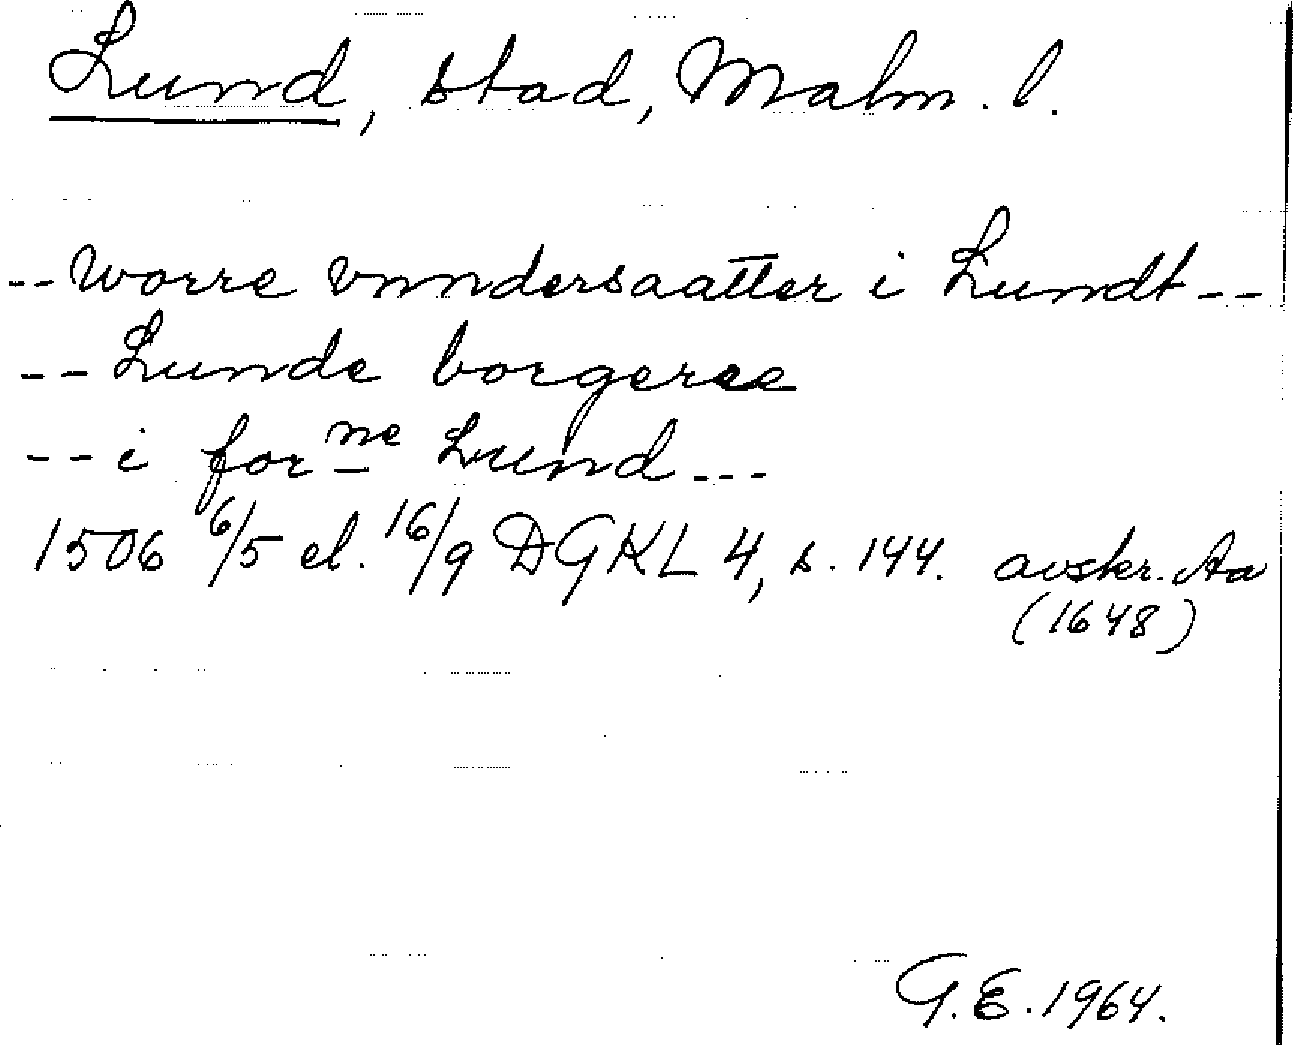 Lund, stad, Malm. l.
-- worre vnndersaatter i Lundt --
-- Lunde borgeree
-- i for ne Lund ---
1506 6/5 el. 16/9 DGKL 4, s. 144. avskr. Aa
(1648)
G. E. 1964.